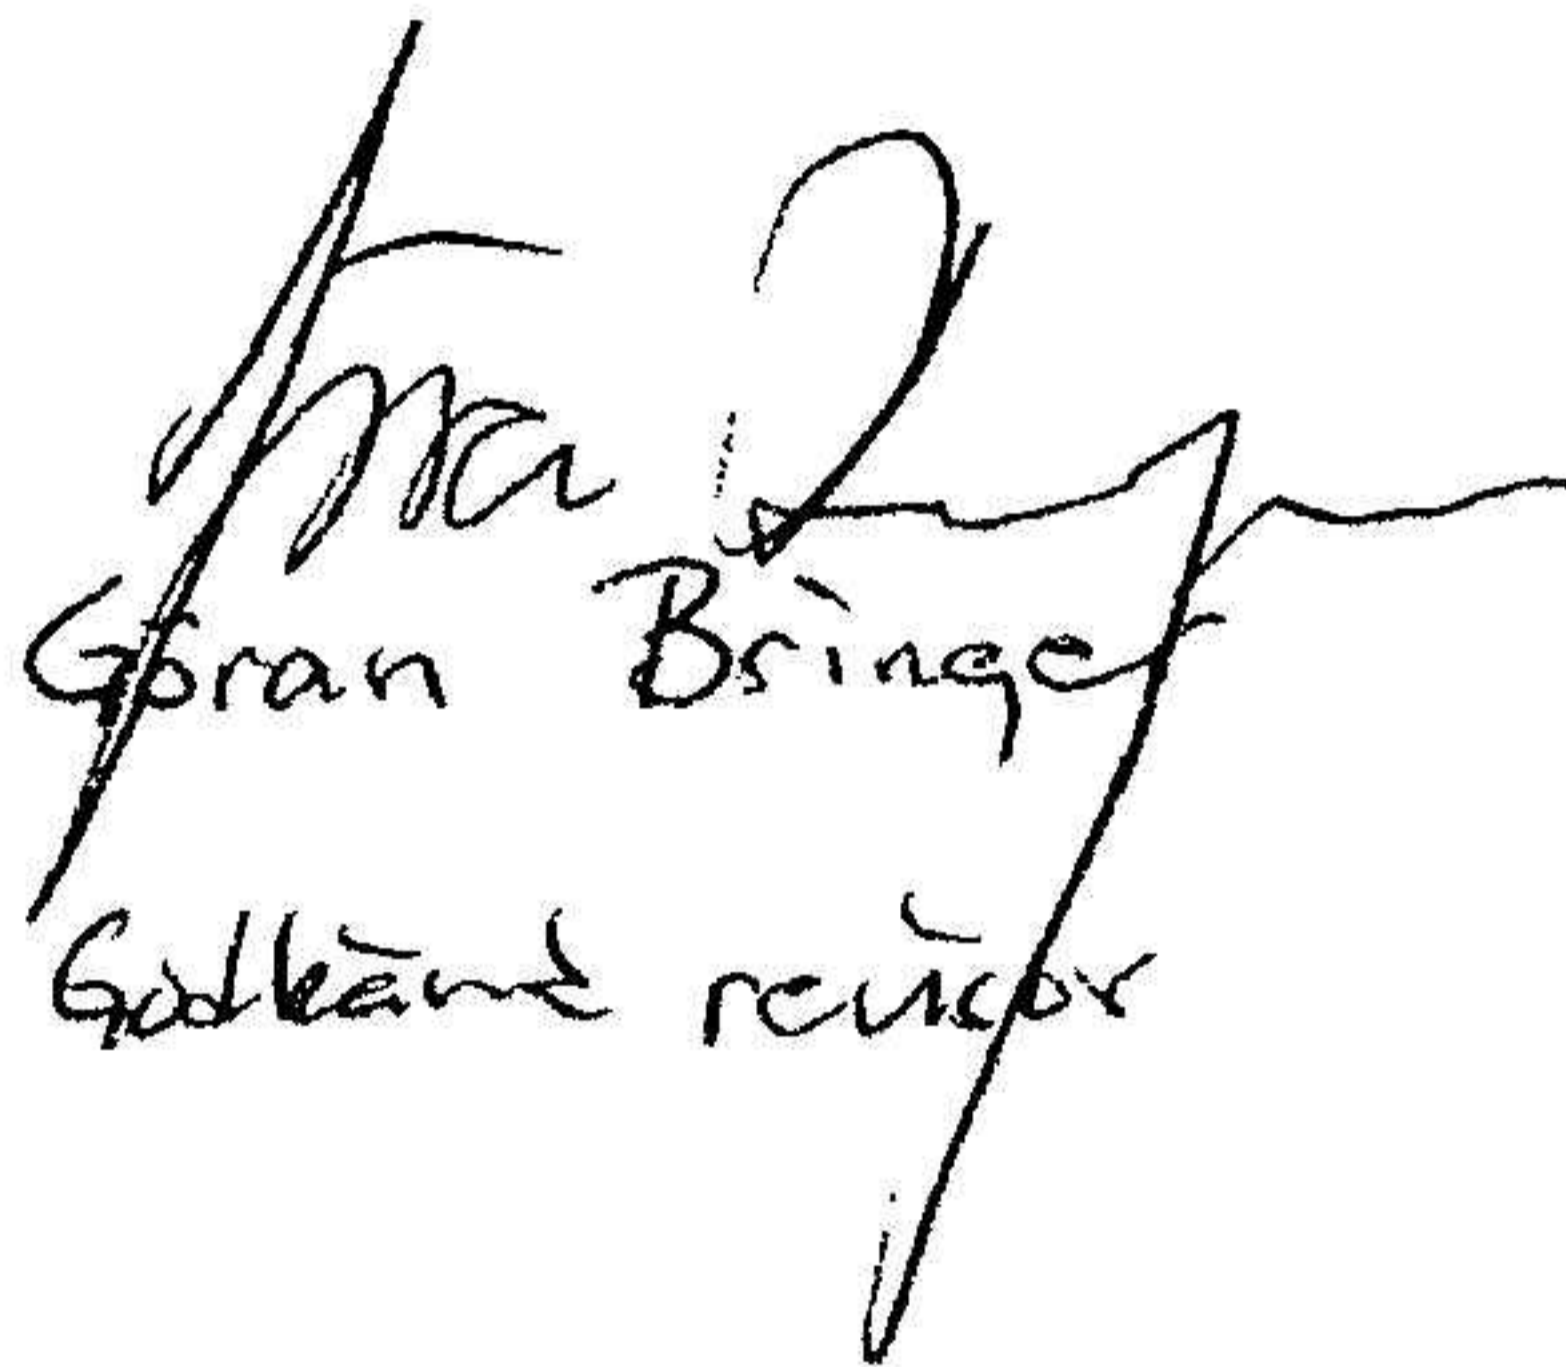 Göran Bringer
Godkänd revisor